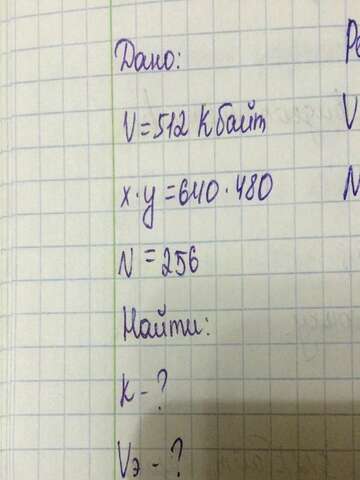 Дано:
Ре
V = 512 Кбайт
V
x·y = 640·480
N
N = 256
Найти:
K - ?
Vэ - ?